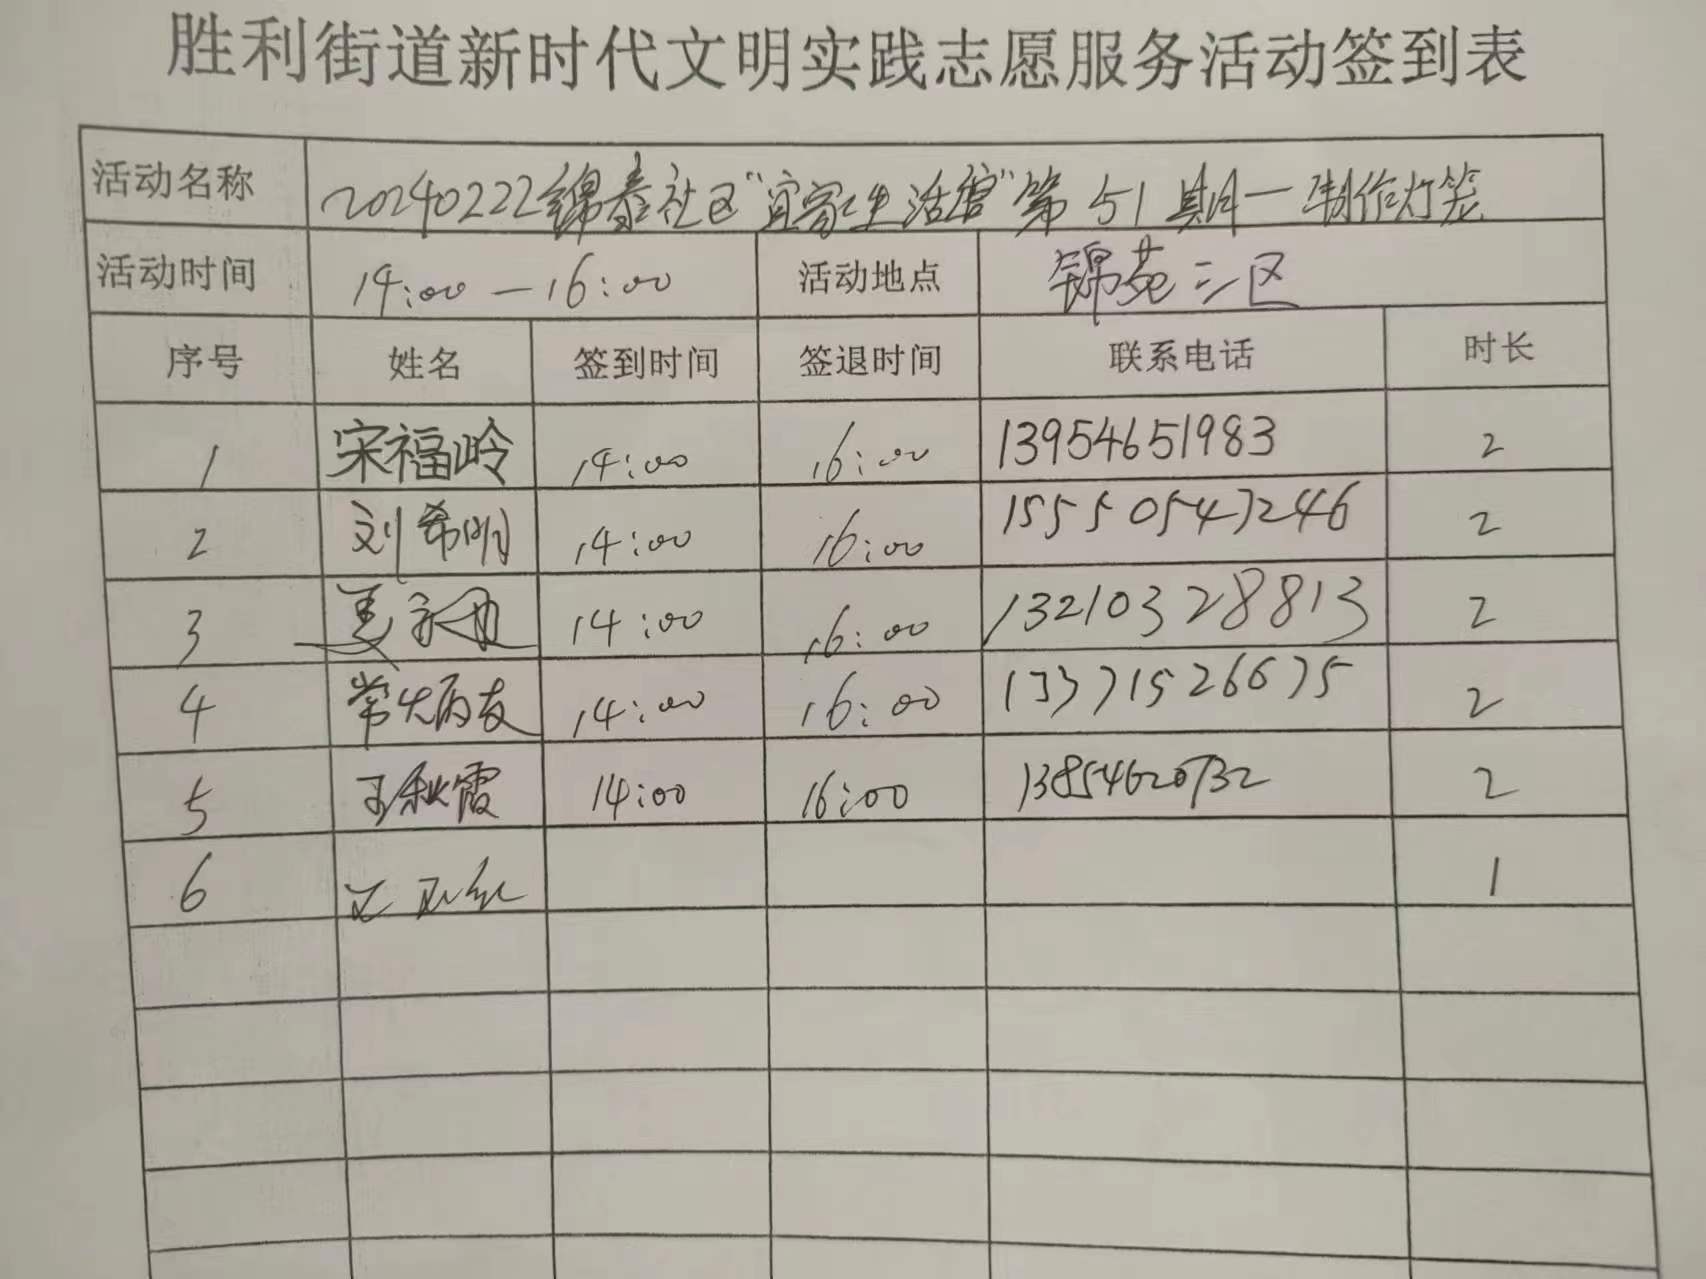 胜利街道新时代文明实践志愿服务活动签到表
活动名称 20240222锦泰社区“宜家生活馆”第51期一制作灯笼
活动时间 14:00—16:00 活动地点 锦苑三区
序号 姓名 签到时间 签退时间 联系电话 时长
1 宋福岭 14:00 16:00 13954651983 2
2 刘希明 14:00 16:00 15550547246 2
3 14:00 16:00 13210328813 2
4 14:00 16:00 13371526675 2
5 王秋霞 14:00 16:00 13854620732 2
6 1